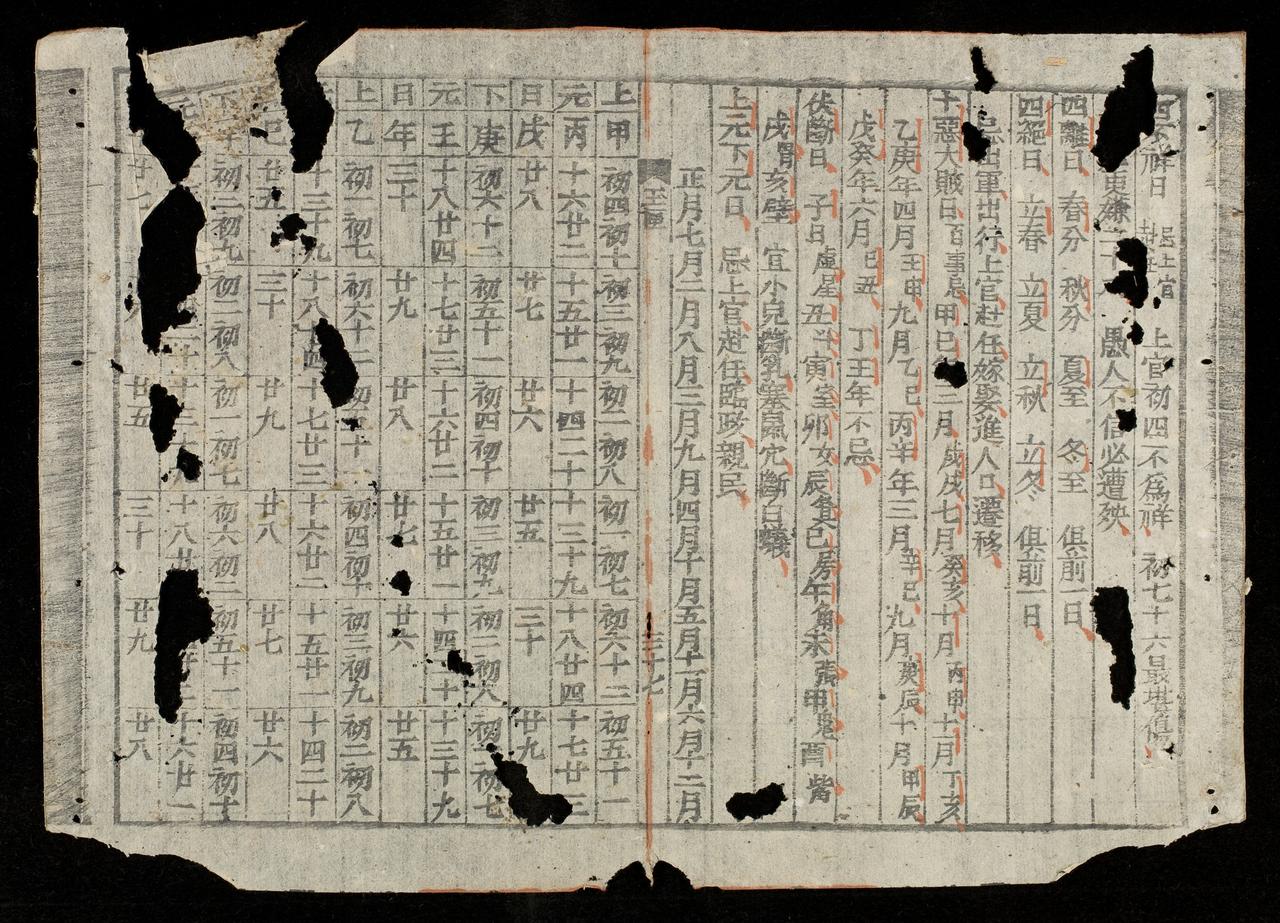 日 上官 上官初四不爲祥 初七十六最堪傷
愚人不信必遭殃
四離日 春分 秋分 夏至 冬至 俱前一日
四絕日 立春 立夏 立秋 立冬 俱前一日
忌出軍出行上官赴任嫁娶進人口遷移
十惡大敗日百事忌甲己年三月戊戌七月癸亥十月丙申十一月丁亥
乙庚年四月壬申九月乙巳 丙辛年三月辛巳九月庚辰十月甲辰
戊癸年六月己丑 丁壬年不忌
伏斷日 子日虛 丑斗寅室 卯女辰箕巳房午角未張申鬼 酉觜
戌胃亥壁 宜小兒斷乳塞鼠穴斷白蟻
上元下元日 忌上官赴任臨政親民
正月七月二月八月三月九月四月十月五月十一月六月十二月
玉匣
三十七
上甲 初四初十 初三初九 初二初八 初一初七 初六十二 初五十一
元丙 十六廿二 十五廿一 十四二十 十三十九 十八廿四 十七廿三
日戊 廿八 廿七 廿六 廿五 三十 廿九
下庚 初六十二 初五十一 初四初十 初三初九 初二初八 初七
元壬 十八廿四 十七廿三 十六廿二 十五廿一 十四二十 十三十九
日年 三十 廿九 廿八 廿七 廿六 廿五
上乙 初一初七 初六十二 十一 初四初十 初三初九 初二初八
十三十九 十八廿四 十七廿三 十六廿二 十五廿一 十四二十
巳 廿五 三十 廿九 廿八 廿七 廿六
下 初九 初八 初一初七 初六 初五十一 初四初十
元 二十 十三十九 十八廿 十六廿二
廿五 三十 廿九 廿八